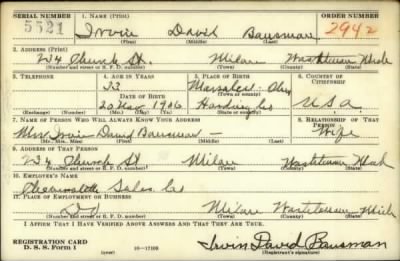 SERIAL NUMBER 1. NAME (Print) ORDER NUMBER
5521 Irvin David Bausman 2942
(First) (Middle) (Last)
2. ADDRESS (Print)
Church St. Milan Washtenaw Mich
(Number and street or R. F. D. number) (Town) (County) (State)
3. TELEPHONE 4. AGE IN YEARS 5. PLACE OF BIRTH 6. COUNTRY OF CITIZENSHIP
33 Ohio
DATE OF BIRTH (Town or county)
20 Nov 1906 Hardin Co U S A
(Exchange) (Number) (Mo.) (Day) (Yr.) (State or country)
7. NAME OF PERSON WHO WILL ALWAYS KNOW YOUR ADDRESS 8. RELATIONSHIP OF THAT PERSON
Mrs Irvin David Bausman — Wife
(Mr., Mrs., Miss) (First) (Middle) (Last)
9. ADDRESS OF THAT PERSON
Church St Milan Washtenaw Mich
(Number and street or R. F. D. number) (Town) (County) (State)
10. EMPLOYER'S NAME
Chevrolet Sales Co
11. PLACE OF EMPLOYMENT OR BUSINESS
Milan Washtenaw Mich
(Number and street or R. F. D. number) (Town) (County) (State)
I AFFIRM THAT I HAVE VERIFIED ABOVE ANSWERS AND THAT THEY ARE TRUE.
REGISTRATION CARD
D. S. S. Form 1 (over) 16—17105 Irvin David Bausman